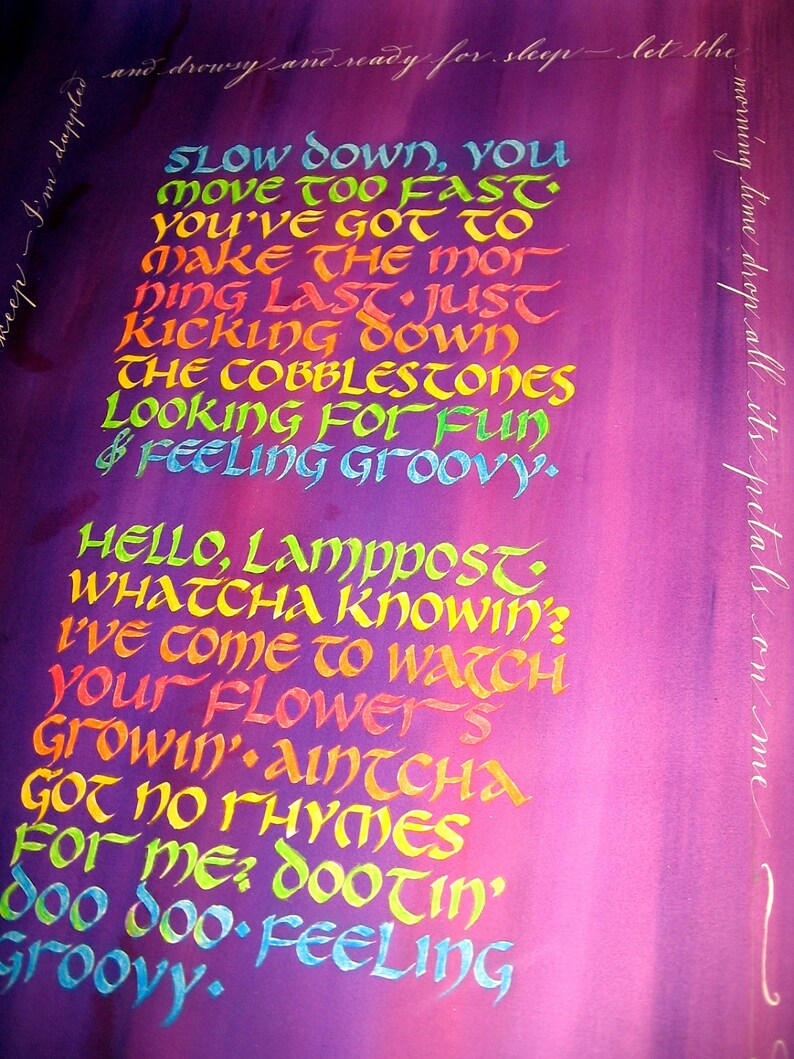 keep ~ I'm dappled
and drowsy and ready for sleep ~ let the
morning time drop all its petals on me
SLOW DOWN, YOU
MOVE TOO FAST·
YOU'VE GOT TO
MAKE THE MOR
NING LAST·JUST
KICKING DOWN
THE COBBLESTONES
LOOKING FOR FUN
& FEELING GROOVY·
HELLO, LAMPPOST·
WHATCHA KNOWIN'?
I'VE COME TO WATCH
YOUR FLOWERS
GROWIN'·AINTCHA
GOT NO RHYMES
FOR ME? DOOTIN'
DOO DOO·FEELING
GROOVY·